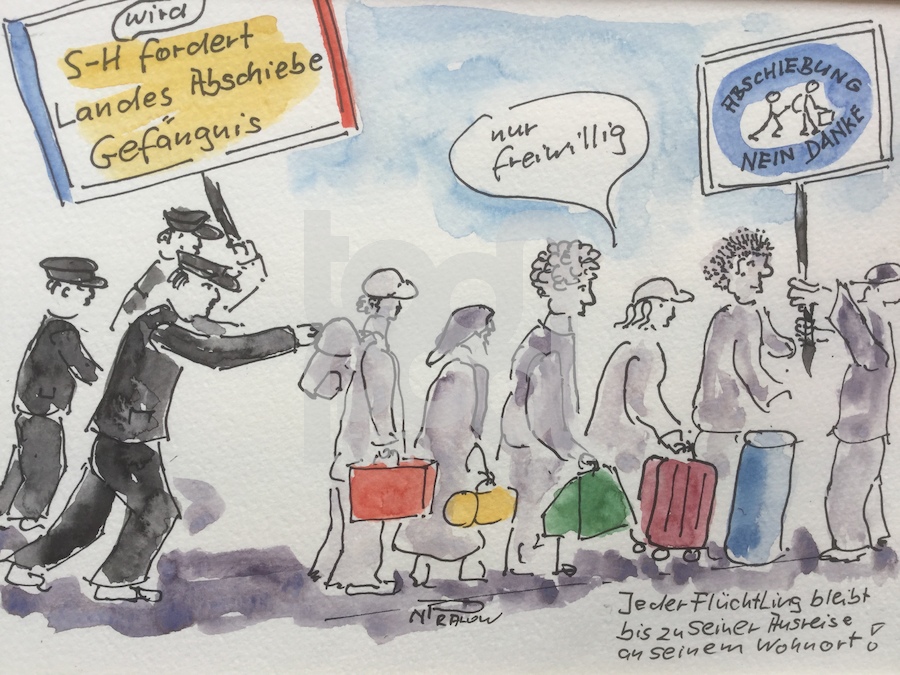 wird
S-H fordert
Landes Abschiebe
Gefängnis
nur
freiwillig
ABSCHIEBUNG
NEIN DANKE
Jeder Flüchtling bleibt
bis zu seiner Ausreise
an seinem Wohnort!